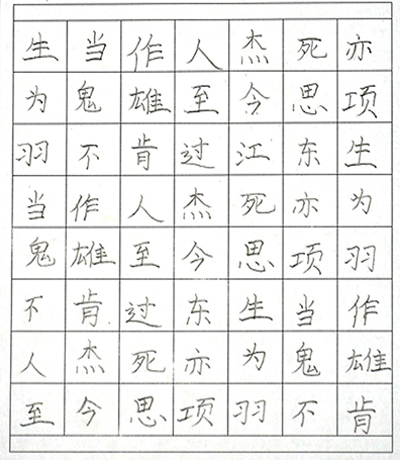 生当作人杰死亦
为鬼雄至今思项
羽不肯过江东生
当作人杰死亦为
鬼雄至今思项羽
不肯过东生当作
人杰死亦为鬼雄
至今思项羽不肯